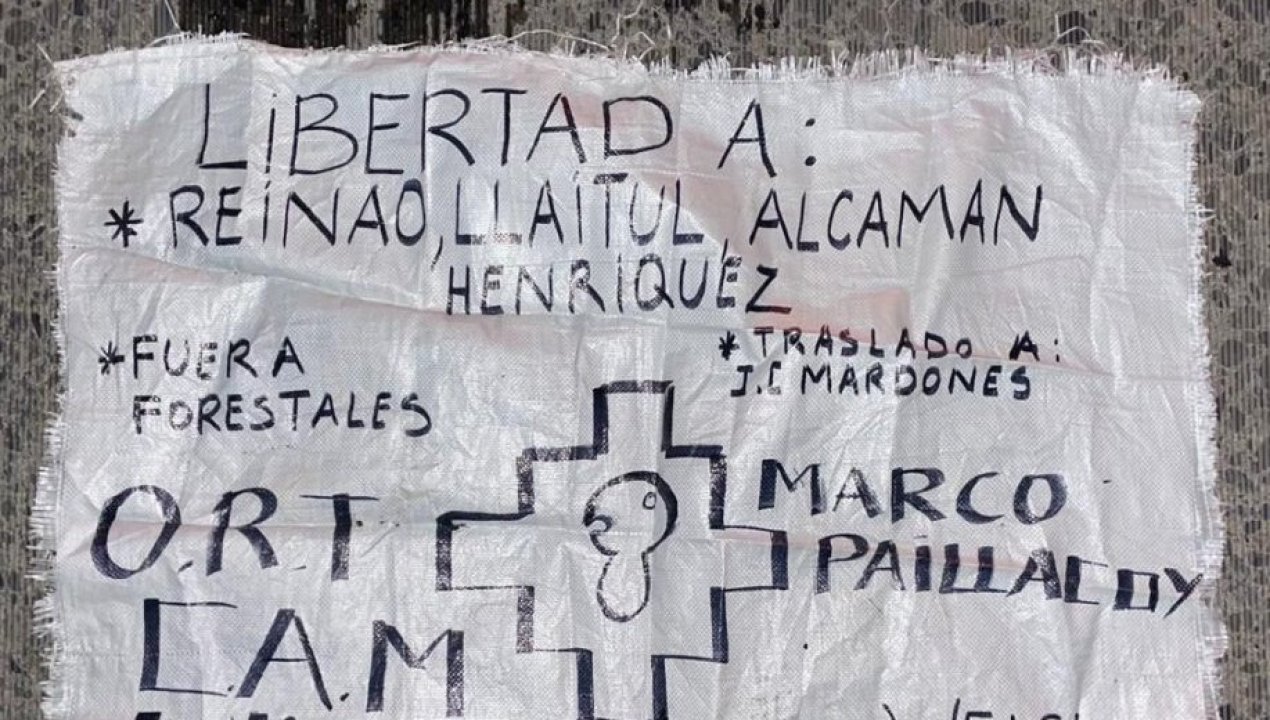 LiBERTAD A:
* REiNAO, LLAiTUL, ALCAMAN
HENRiQUEZ
* FUERA
FORESTALES
* TRASLADO A:
J.C MARDONES
O.R.T
C.A.M
MARCO
PAiLLACOY